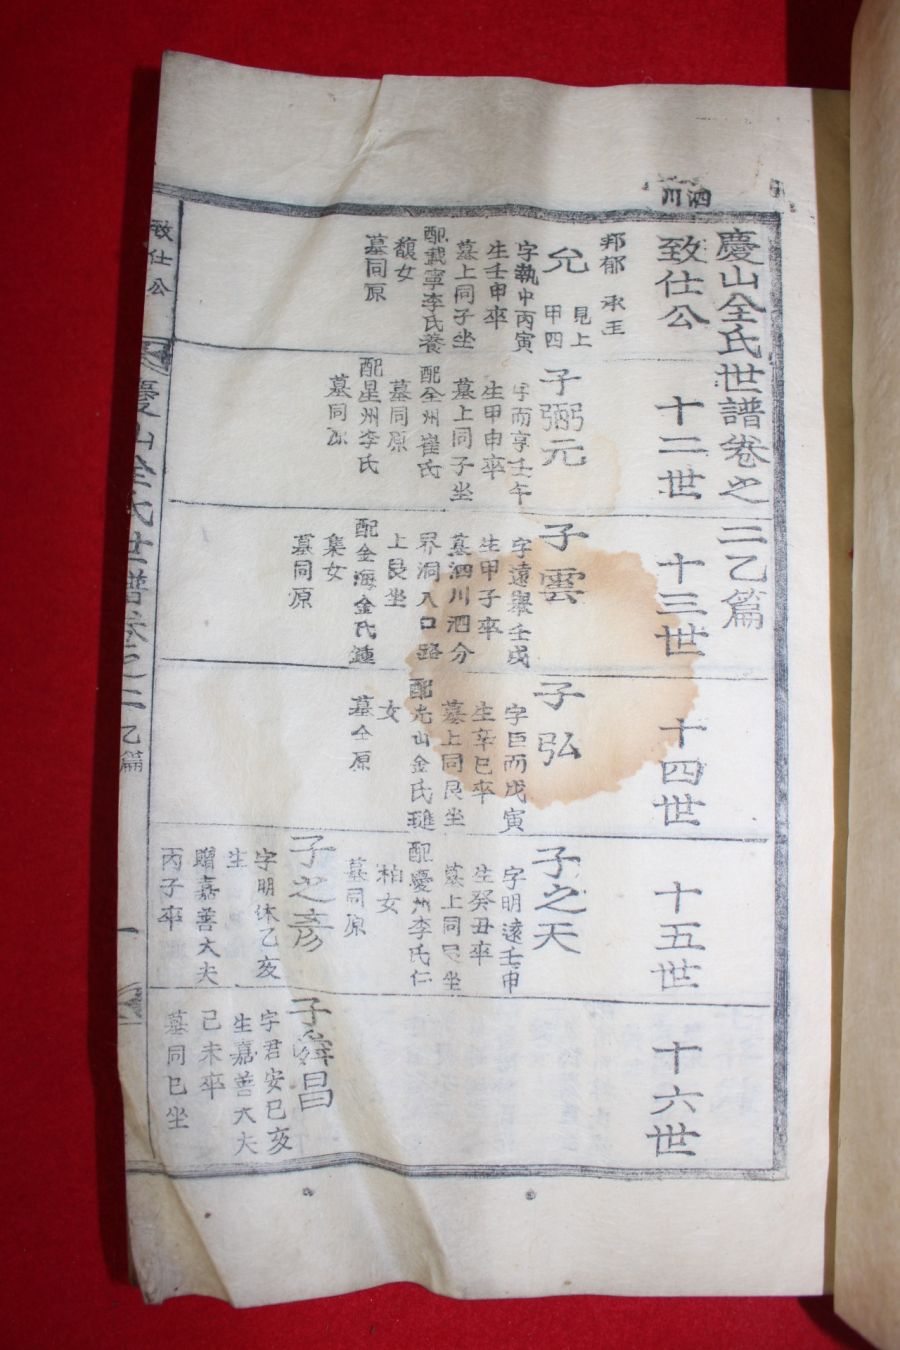 泗川
慶山全氏世譜卷之二乙篇
致仕公
十二世
十三世
十四世
十五世
十六世
邦郁 承玉
允
見上
甲四
字執中丙寅
生壬申卒
墓上同子坐
配載寧李氏養
馥女
墓同原
子弼元
字而亨壬午
生甲申卒
墓上同子坐
配全州崔氏
墓同原
配星州李氏
墓同原
子雲
字遠擧壬戌
生甲子卒
墓泗川泗分
界洞入口路
上艮坐
配金海金氏鍾
集女
墓同原
子弘
字巨而戊寅
生辛巳卒
墓上同艮坐
配光山金氏璡
女
墓仝原
子之天
字明遠壬申
生癸丑卒
墓上同艮坐
配慶州李氏仁
柏女
墓同原
子之彥
字明休乙亥
生
贈嘉善大夫
丙子卒
子舜昌
字君安巳亥
生嘉善大夫
己未卒
墓同巳坐
致仕公
慶山全氏世譜卷之二乙篇
一